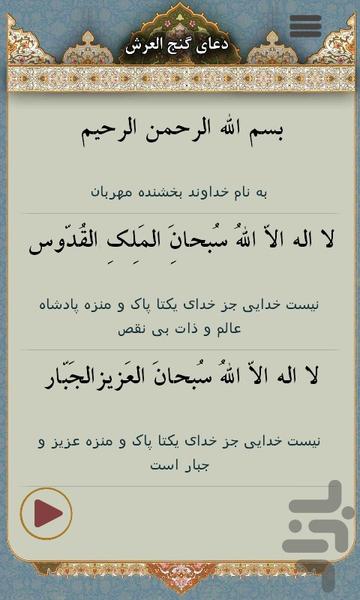 دعای گنج العرش
بسم الله الرحمن الرحیم
به نام خداوند بخشنده مهربان
لا اله الاّ اللهُ سُبحانَِ المَلِکِ القُدّوس
نیست خدایی جز خدای یکتا پاک و منزه پادشاه
عالم و ذات بی نقص
لا اله الاّ اللهُ سُبحانَ العَزیزالجَبّار
نیست خدایی جز خدای یکتا پاک و منزه عزیز و
جبار است
بازار